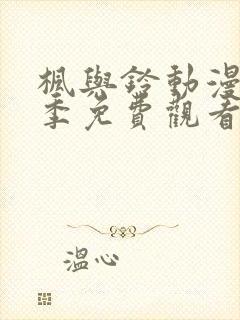 楓與鈴動漫
季免費觀看
溫心